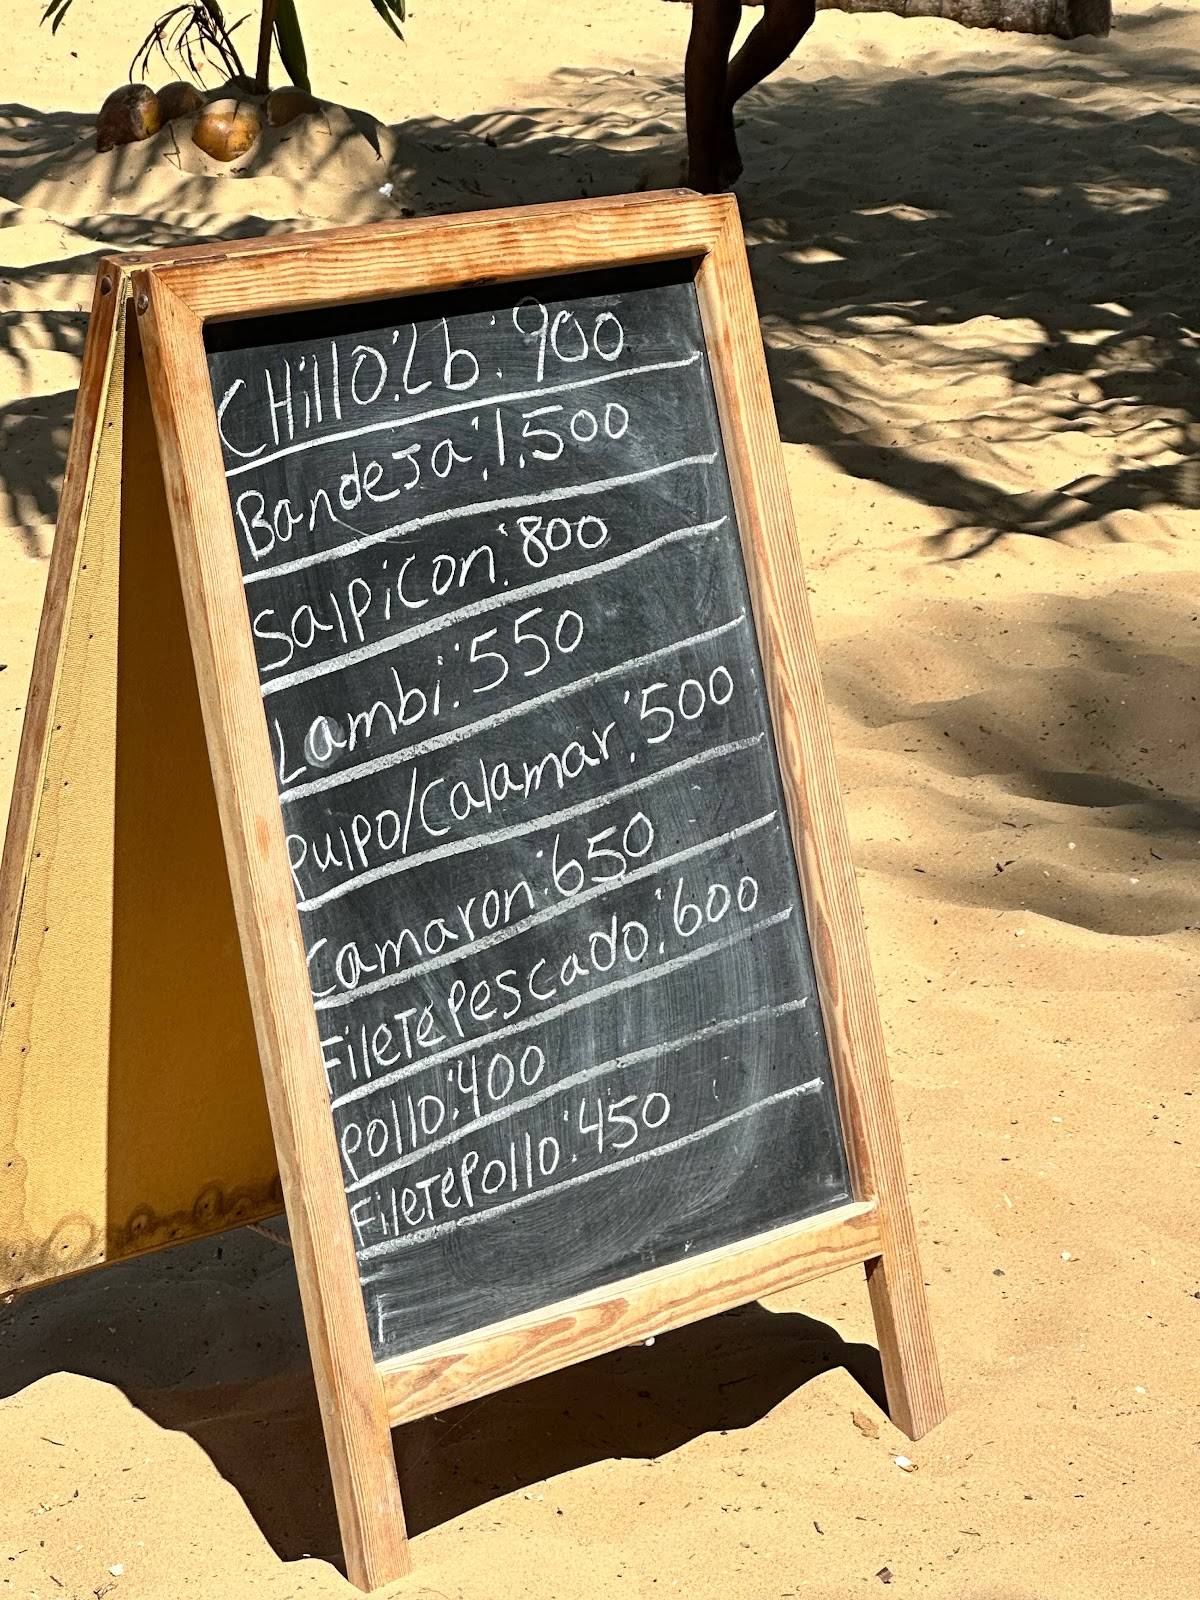 CHillO: Lb: 900
Bandeja: 1,500
Salpicon: 800
Lambi: 550
Pulpo/Calamar: 500
Camaron: 650
FileTe Pescado: 600
Pollo: 400
FileTe Pollo: 450